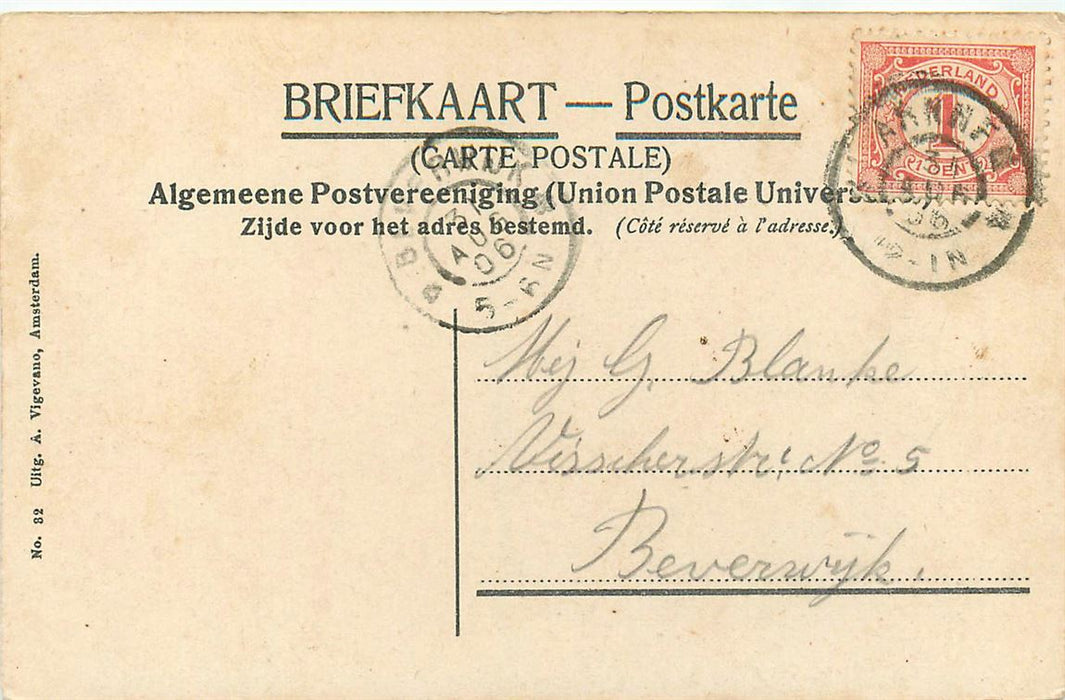 BRIEFKAART — Postkarte
(CARTE POSTALE)
Algemeene Postvereeniging (Union Postale
Zijde voor het adres bestemd. (Côté réservé à l'adresse.)
NEDERLAND
1
CENT
31
AUG
06
5-6N
Mej G. Blanke
Visscherstr. No. 5
Beverwijk.
No. 32 Uitg. A. Vigevano, Amsterdam.